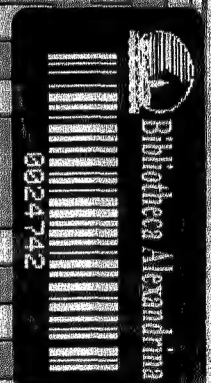 Bibliotheca Alexandrina
0024742